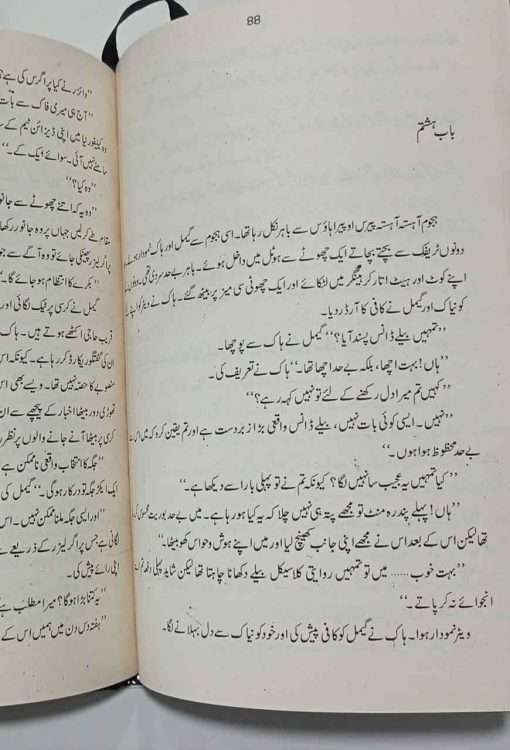 88
باب ہشتم
ہجوم آہستہ آہستہ پیرس اوپیرا ہاؤس سے باہر نکل رہا تھا۔ اسی ہجوم سے گیمل اور ہاک نمودار ہوئے
دونوں ٹریفک سے بچتے بچاتے ایک چھوٹے سے ہوٹل میں داخل ہوئے۔ باہر بے حد سردی تھی۔ دونوں
اپنے کوٹ اور ہیٹ اتار کر ہینگر میں لٹکائے اور ایک چھوٹی سی میز پر بیٹھ گئے۔ ہاک نے ویٹر کو اپنے
کونیاک اور گیمل نے کافی کا آرڈر دیا۔
”تمہیں بیلے ڈانس پسند آیا؟“ گیمل نے ہاک سے پوچھا۔
”ہاں! بہت اچھا، بلکہ بے حد اچھا تھا۔“ ہاک نے تعریف کی۔
”کہیں تم میرا دل رکھنے کے لئے تو نہیں کہہ رہے؟“
”نہیں۔ ایسی کوئی بات نہیں، بیلے ڈانس واقعی بڑا زبردست ہے اور تم یقین کرو کہ میں اس
بے حد محظوظ ہوا ہوں۔“
”کیا تمہیں یہ عجیب سا نہیں لگا؟ کیونکہ تم نے تو پہلی بار اسے دیکھا ہے۔“
”ہاں! پہلے پندرہ منٹ تو مجھے پتہ ہی نہیں چلا کہ یہ کیا ہو رہا ہے۔ میں بے حد بوریت محسوس کر
تھا لیکن اس کے بعد اس نے مجھے اپنی جانب کھینچ لیا اور میں اپنے ہوش و حواس کھو بیٹھا۔“
”بہت خوب...... میں تو تمہیں روایتی کلاسیکل بیلے دکھانا چاہتا تھا لیکن شاید پہلی دفعہ تم
انجوائے نہ کر پاتے۔“
ویٹر نمودار ہوا۔ ہاک نے گیمل کو کافی پیش کی اور خود کونیاک سے دل بہلانے لگا۔
”وائزر نے کیا پراگرس کی ہے؟
”آج ہی میری فاک سے بات
وہ کیلیفورنیا میں اپنی ڈیزائن ٹیم کے
سامنے نہیں آئی۔ سوائے ایک کے۔“
”وہ کیا؟“
”وہ یہ کہ اتنے چھوٹے سے جانور
مقام طے کر لیں جہاں پر وہ جانور رکھا
چرا گریزر پھینکی جائے تو وہ آگے سے جو
”بکرے کا انتظام ہو جائے گا۔“
گیمل نے کرسی پر ٹیک لگائی اور
قریب حاجی اکٹھے ہوتے ہیں۔ ہاک
ان کی گفتگو ریکارڈ کر رہا ہے۔ کیونکہ اس
منصوبے کا حصہ نہیں تھا۔ ویسے بھی
تھوڑی دور بیٹھا اخبار کے پیچھے سے ان
کرسی پر بیٹھا آنے جانے والوں پر نظر
”جگہ کا انتخاب واقعی ناممکن ہے
ایک ایکڑ جگہ تو درکار ہو گی۔“ گیمل کی
”اور ایسی جگہ ملنا ناممکن نہیں۔ اس
لگانی ہے جس پر اگر لیزر کے ذریعے
اپنی رائے پیش کی۔
”یہ کتنا بڑا ہو گا؟ میرا مطلب ہے
”ہفتہ دس دن میں ہمیں اس کے